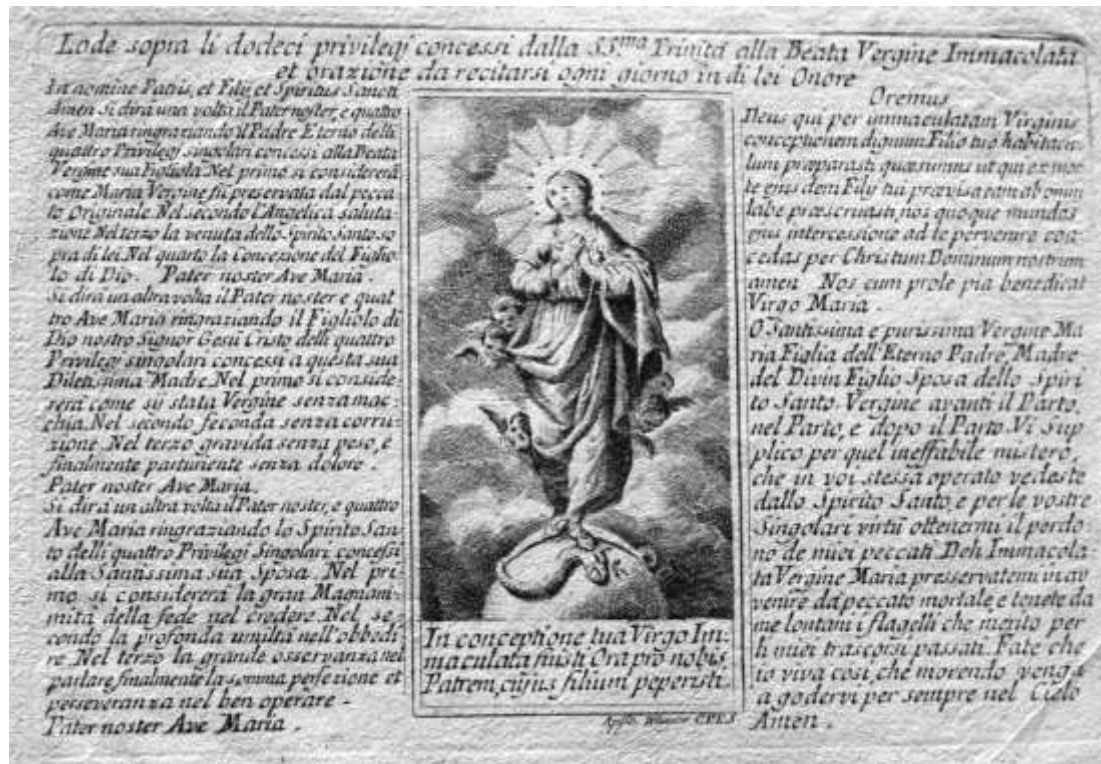 Lode sopra li dodeci privilegj concessi dalla SS.ma Trinità alla Beata Vergine Immacolata
et orazione da recitarsi ogni giorno in di lei Onore
In nomine Patris, et Filij, et Spiritus Sancti
Amen Si dirà una volta il Pater noster, e quattro
Ave Maria ringraziando il Padre Eterno delli
quattro Privilegj singolari concessi alla Beata
Vergine sua Figliola. Nel primo si considererà
come Maria Vergine fù preservata dal pecca-
to Originale. Nel secondo l'Angelica saluta-
zione Nel terzo la venuta dello Spirito Santo so
pra di lei. Nel quarto la Concezione del Figlio
lo di Dio. Pater noster Ave Maria.
Si dirà un altra volta il Pater noster, e quat
tro Ave Maria ringraziando il Figliolo di
Dio nostro Signor Gesù Cristo delli quattro
Privilegj singolari concessi a questa sua
Diletissima Madre. Nel primo si conside-
rerà come sij stata Vergine senza mac-
chia. Nel secondo feconda senza corru-
zione. Nel terzo gravida senza peso, e
finalmente parturiente senza dolore.
Pater noster Ave Maria.
Si dirà un altra volta il Pater noster, e quattro
Ave Maria ringraziando lo Spirito San
to delli quattro Privilegj Singolari concessi
alla Santissima sua Sposa. Nel pri-
mo si considererà la gran Magnani-
mità della fede nel credere. Nel se-
condo la profonda umiltà nell'obbedi
re Nel terzo la grande osservanza nel
parlare, finalmente la somma perfezione et
perseveranza nel ben operare.
Pater noster Ave Maria.
In conceptione tua Virgo Im-
maculata fuisti Ora pro nobis
Patrem, cujus filium peperisti.
C.P.E.S
Oremus
Deus qui per immaculatam Virginis
conceptionem dignum Filio tuo habitacu-
lum præparasti quæsumus ut qui ex mor
te ejusdem Filij tui prævisa eam ab omni
labe præservasti, nos quoque mundos
ejus intercessione ad te pervenire con-
cedas per Christum Dominum nostrum
amen. Nos cum prole pia benedicat
Virgo Maria.
O Santissima e purissima Vergine Ma
ria Figlia dell'Eterno Padre, Madre
del Divin Figlio Sposa dello Spiri
to Santo. Vergine avanti il Parto,
nel Parto, e dopo il Parto Vi sup
plico per quel ineffabile mistero,
che in voi stessa operato vedeste
dallo Spirito Santo, e per le vostre
Singolari virtù ottenermi il perdo
no de miei peccati. Deh Immacola-
ta Vergine Maria presservatemi in av
venire da peccato mortale, e tenete da
me lontani i flagelli che merito per
li miei trascorsi passati. Fate che
io viva così, che morendo venga
a godervi per sempre nel Cielo
Amen.